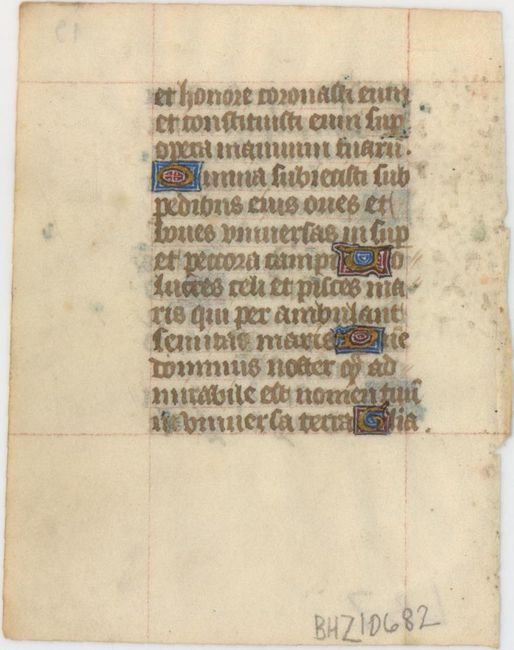 et honore coronasti eum
et constituisti eum sup
opera manuum tuarū.
Omnia subiecisti sub
pedibus eius oues et
boues vniuersas in sup
et peccora campi Uo
lucres celi et pisces ma
ris qui per ambulant
semitas maris Dne
dominus noster qͫ ad
mirabile est nomen tuū
in vniuersa terra Glia
BHZ1D682